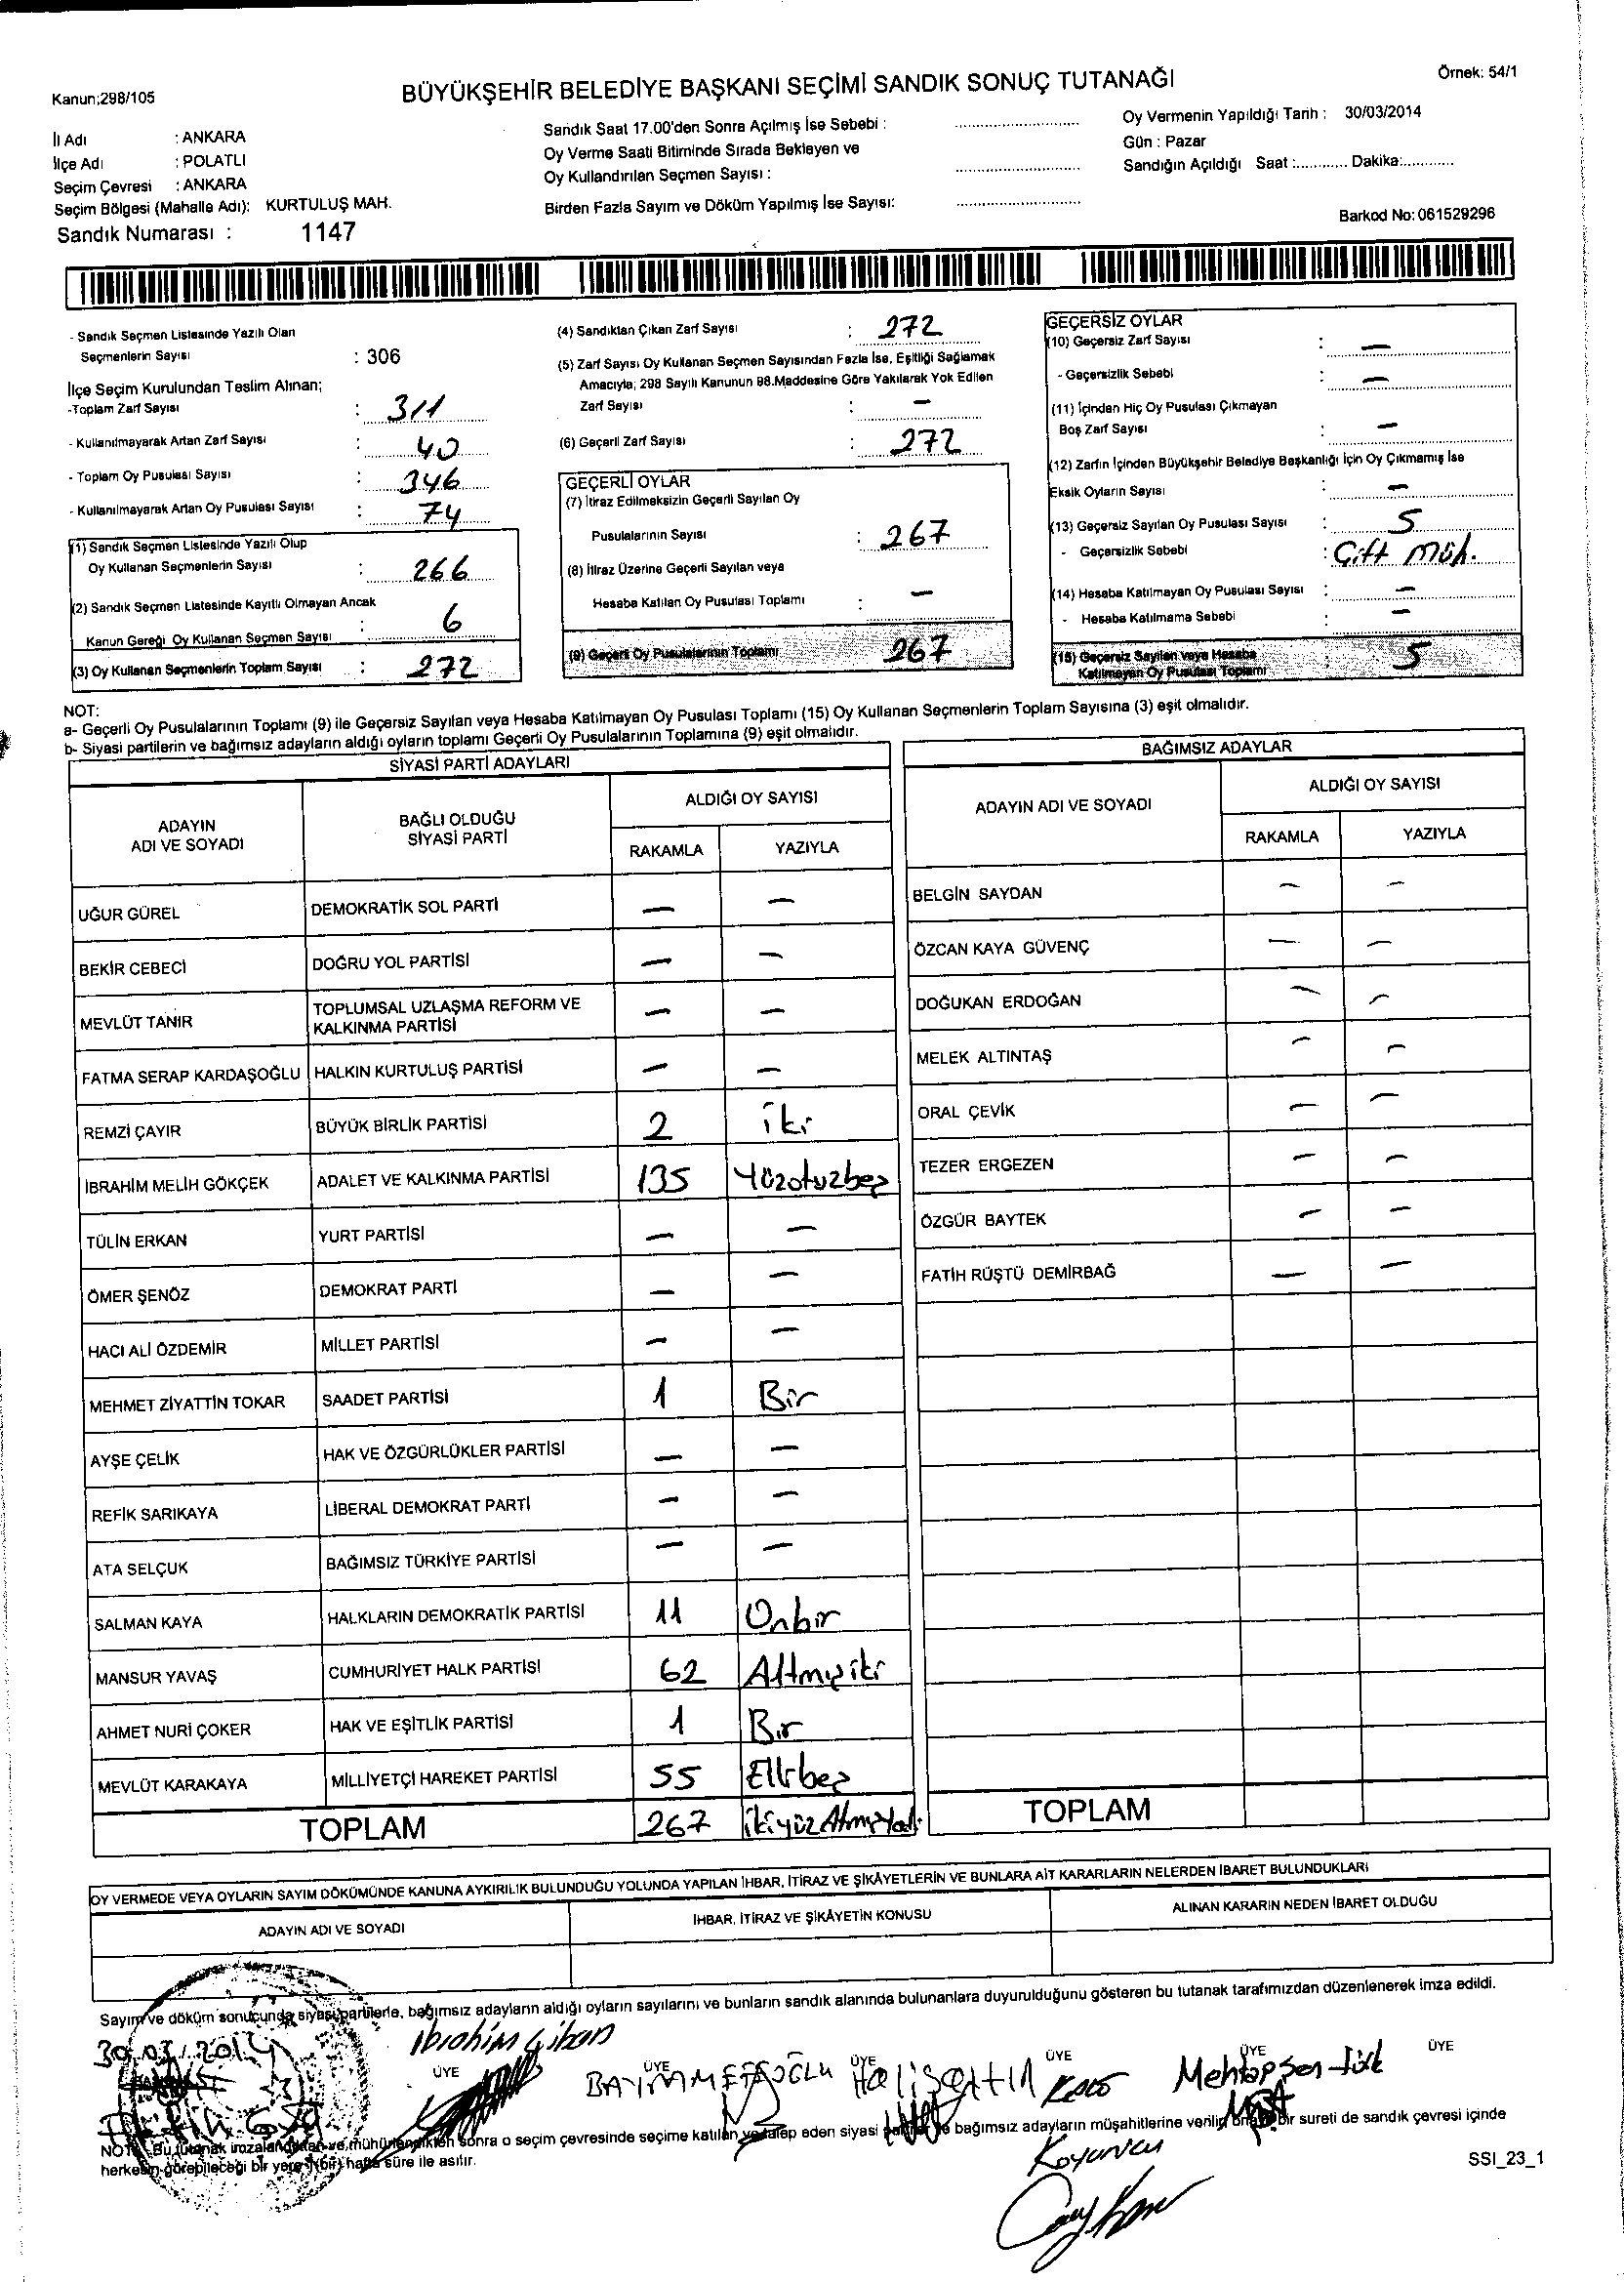 Kanun;298/105
BÜYÜKŞEHİR BELEDİYE BAŞKANI SEÇİMİ SANDIK SONUÇ TUTANAĞI
Örnek: 54/1
İl Adı : ANKARA
İlçe Adı : POLATLI
Seçim Çevresi : ANKARA
Seçim Bölgesi (Mahalle Adı): KURTULUŞ MAH.
Sandık Numarası : 1147
Sandık Saat 17.00'den Sonra Açılmış İse Sebebi :
Oy Verme Saati Bitiminde Sırada Bekleyen ve
Oy Kullandırılan Seçmen Sayısı :
Birden Fazla Sayım ve Döküm Yapılmış İse Sayısı:
Oy Vermenin Yapıldığı Tarih : 30/03/2014
Gün : Pazar
Sandığın Açıldığı Saat :............ Dakika:............
Barkod No: 061529296
- Sandık Seçmen Listesinde Yazılı Olan
Seçmenlerin Sayısı : 306
İlçe Seçim Kurulundan Teslim Alınan;
-Toplam Zarf Sayısı : 311
- Kullanılmayarak Artan Zarf Sayısı : 40
- Toplam Oy Pusulası Sayısı : 346
- Kullanılmayarak Artan Oy Pusulası Sayısı : 74
(1) Sandık Seçmen Listesinde Yazılı Olup
Oy Kullanan Seçmenlerin Sayısı : 266
(2) Sandık Seçmen Listesinde Kayıtlı Olmayan Ancak
Kanun Gereği Oy Kullanan Seçmen Sayısı : 6
(3) Oy Kullanan Seçmenlerin Toplam Sayısı : 272
(4) Sandıktan Çıkan Zarf Sayısı : 272
(5) Zarf Sayısı Oy Kullanan Seçmen Sayısından Fazla İse, Eşitliği Sağlamak
Amacıyla; 298 Sayılı Kanunun 98.Maddesine Göre Yakılarak Yok Edilen
Zarf Sayısı : -
(6) Geçerli Zarf Sayısı : 272
GEÇERLİ OYLAR
(7) İtiraz Edilmeksizin Geçerli Sayılan Oy
Pusulalarının Sayısı : 267
(8) İtiraz Üzerine Geçerli Sayılan veya
Hesaba Katılan Oy Pusulası Toplamı : -
(9) Geçerli Oy Pusulalarının Toplamı 267
GEÇERSİZ OYLAR
(10) Geçersiz Zarf Sayısı : -
- Geçersizlik Sebebi : -
(11) İçinden Hiç Oy Pusulası Çıkmayan
Boş Zarf Sayısı : -
(12) Zarfın İçinden Büyükşehir Belediye Başkanlığı İçin Oy Çıkmamış İse
Eksik Oyların Sayısı : -
(13) Geçersiz Sayılan Oy Pusulası Sayısı : 5
- Geçersizlik Sebebi : Çift Müh.
(14) Hesaba Katılmayan Oy Pusulası Sayısı : -
- Hesaba Katılmama Sebebi : -
(15) Geçersiz Sayılan veya Hesaba
Katılmayan Oy Pusulası Toplamı : 5
NOT:
a- Geçerli Oy Pusulalarının Toplamı (9) ile Geçersiz Sayılan veya Hesaba Katılmayan Oy Pusulası Toplamı (15) Oy Kullanan Seçmenlerin Toplam Sayısına (3) eşit olmalıdır.
b- Siyasi partilerin ve bağımsız adayların aldığı oyların toplamı Geçerli Oy Pusulalarının Toplamına (9) eşit olmalıdır.
SİYASİ PARTİ ADAYLARI
ADAYIN ADI VE SOYADI
BAĞLI OLDUĞU SİYASİ PARTİ
ALDIĞI OY SAYISI
RAKAMLA YAZIYLA
UĞUR GÜREL DEMOKRATİK SOL PARTİ - -
BEKİR CEBECİ DOĞRU YOL PARTİSİ - -
MEVLÜT TANIR TOPLUMSAL UZLAŞMA REFORM VE KALKINMA PARTİSİ - -
FATMA SERAP KARDAŞOĞLU HALKIN KURTULUŞ PARTİSİ - -
REMZİ ÇAYIR BÜYÜK BİRLİK PARTİSİ 2 iki
İBRAHİM MELİH GÖKÇEK ADALET VE KALKINMA PARTİSİ 135 Yüzotuzbeş
TÜLİN ERKAN YURT PARTİSİ - -
ÖMER ŞENÖZ DEMOKRAT PARTİ - -
HACI ALİ ÖZDEMİR MİLLET PARTİSİ - -
MEHMET ZİYATTİN TOKAR SAADET PARTİSİ 1 Bir
AYŞE ÇELİK HAK VE ÖZGÜRLÜKLER PARTİSİ - -
REFİK SARIKAYA LİBERAL DEMOKRAT PARTİ - -
ATA SELÇUK BAĞIMSIZ TÜRKİYE PARTİSİ - -
SALMAN KAYA HALKLARIN DEMOKRATİK PARTİSİ 11 Onbir
MANSUR YAVAŞ CUMHURİYET HALK PARTİSİ 62 Altmışiki
AHMET NURİ ÇOKER HAK VE EŞİTLİK PARTİSİ 1 Bir
MEVLÜT KARAKAYA MİLLİYETÇİ HAREKET PARTİSİ 55 Ellibeş
TOPLAM 267 İkiyüz Atmışyedi
BAĞIMSIZ ADAYLAR
ADAYIN ADI VE SOYADI
ALDIĞI OY SAYISI
RAKAMLA YAZIYLA
BELGİN SAYDAN - -
ÖZCAN KAYA GÜVENÇ - -
DOĞUKAN ERDOĞAN - -
MELEK ALTINTAŞ - -
ORAL ÇEVİK - -
TEZER ERGEZEN - -
ÖZGÜR BAYTEK - -
FATİH RÜŞTÜ DEMİRBAĞ - -
TOPLAM
OY VERMEDE VEYA OYLARIN SAYIM DÖKÜMÜNDE KANUNA AYKIRILIK BULUNDUĞU YOLUNDA YAPILAN İHBAR, İTİRAZ VE ŞİKÂYETLERİN VE BUNLARA AİT KARARLARIN NELERDEN İBARET BULUNDUKLARI
ADAYIN ADI VE SOYADI
İHBAR, İTİRAZ VE ŞİKÂYETİN KONUSU
ALINAN KARARIN NEDEN İBARET OLDUĞU
Sayım ve döküm sonucunda siyasi partilerle, bağımsız adayların aldığı oyların sayılarını ve bunların sandık alanında bulunanlara duyurulduğunu gösteren bu tutanak tarafımızdan düzenlenerek imza edildi.
30.03.2014
İbrahim
ÜYE ÜYE ÜYE ÜYE ÜYE ÜYE
Mehtap Şentürk
Koyuncu
NOT: Bu tutanak imzalandıktan ve mühürlendikten sonra o seçim çevresinde seçime katılan ve talep eden siyasi bağımsız adayların müşahitlerine verilir bir sureti de sandık çevresi içinde
herkesin görebileceği bir yere (bir) hafta süre ile asılır.
SSI_23_1